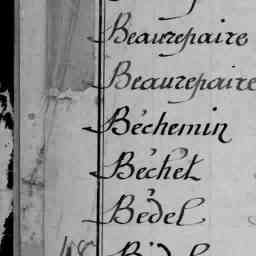 Beaurepaire
Beaurepaire
Béchemin
Béchet
Bedel